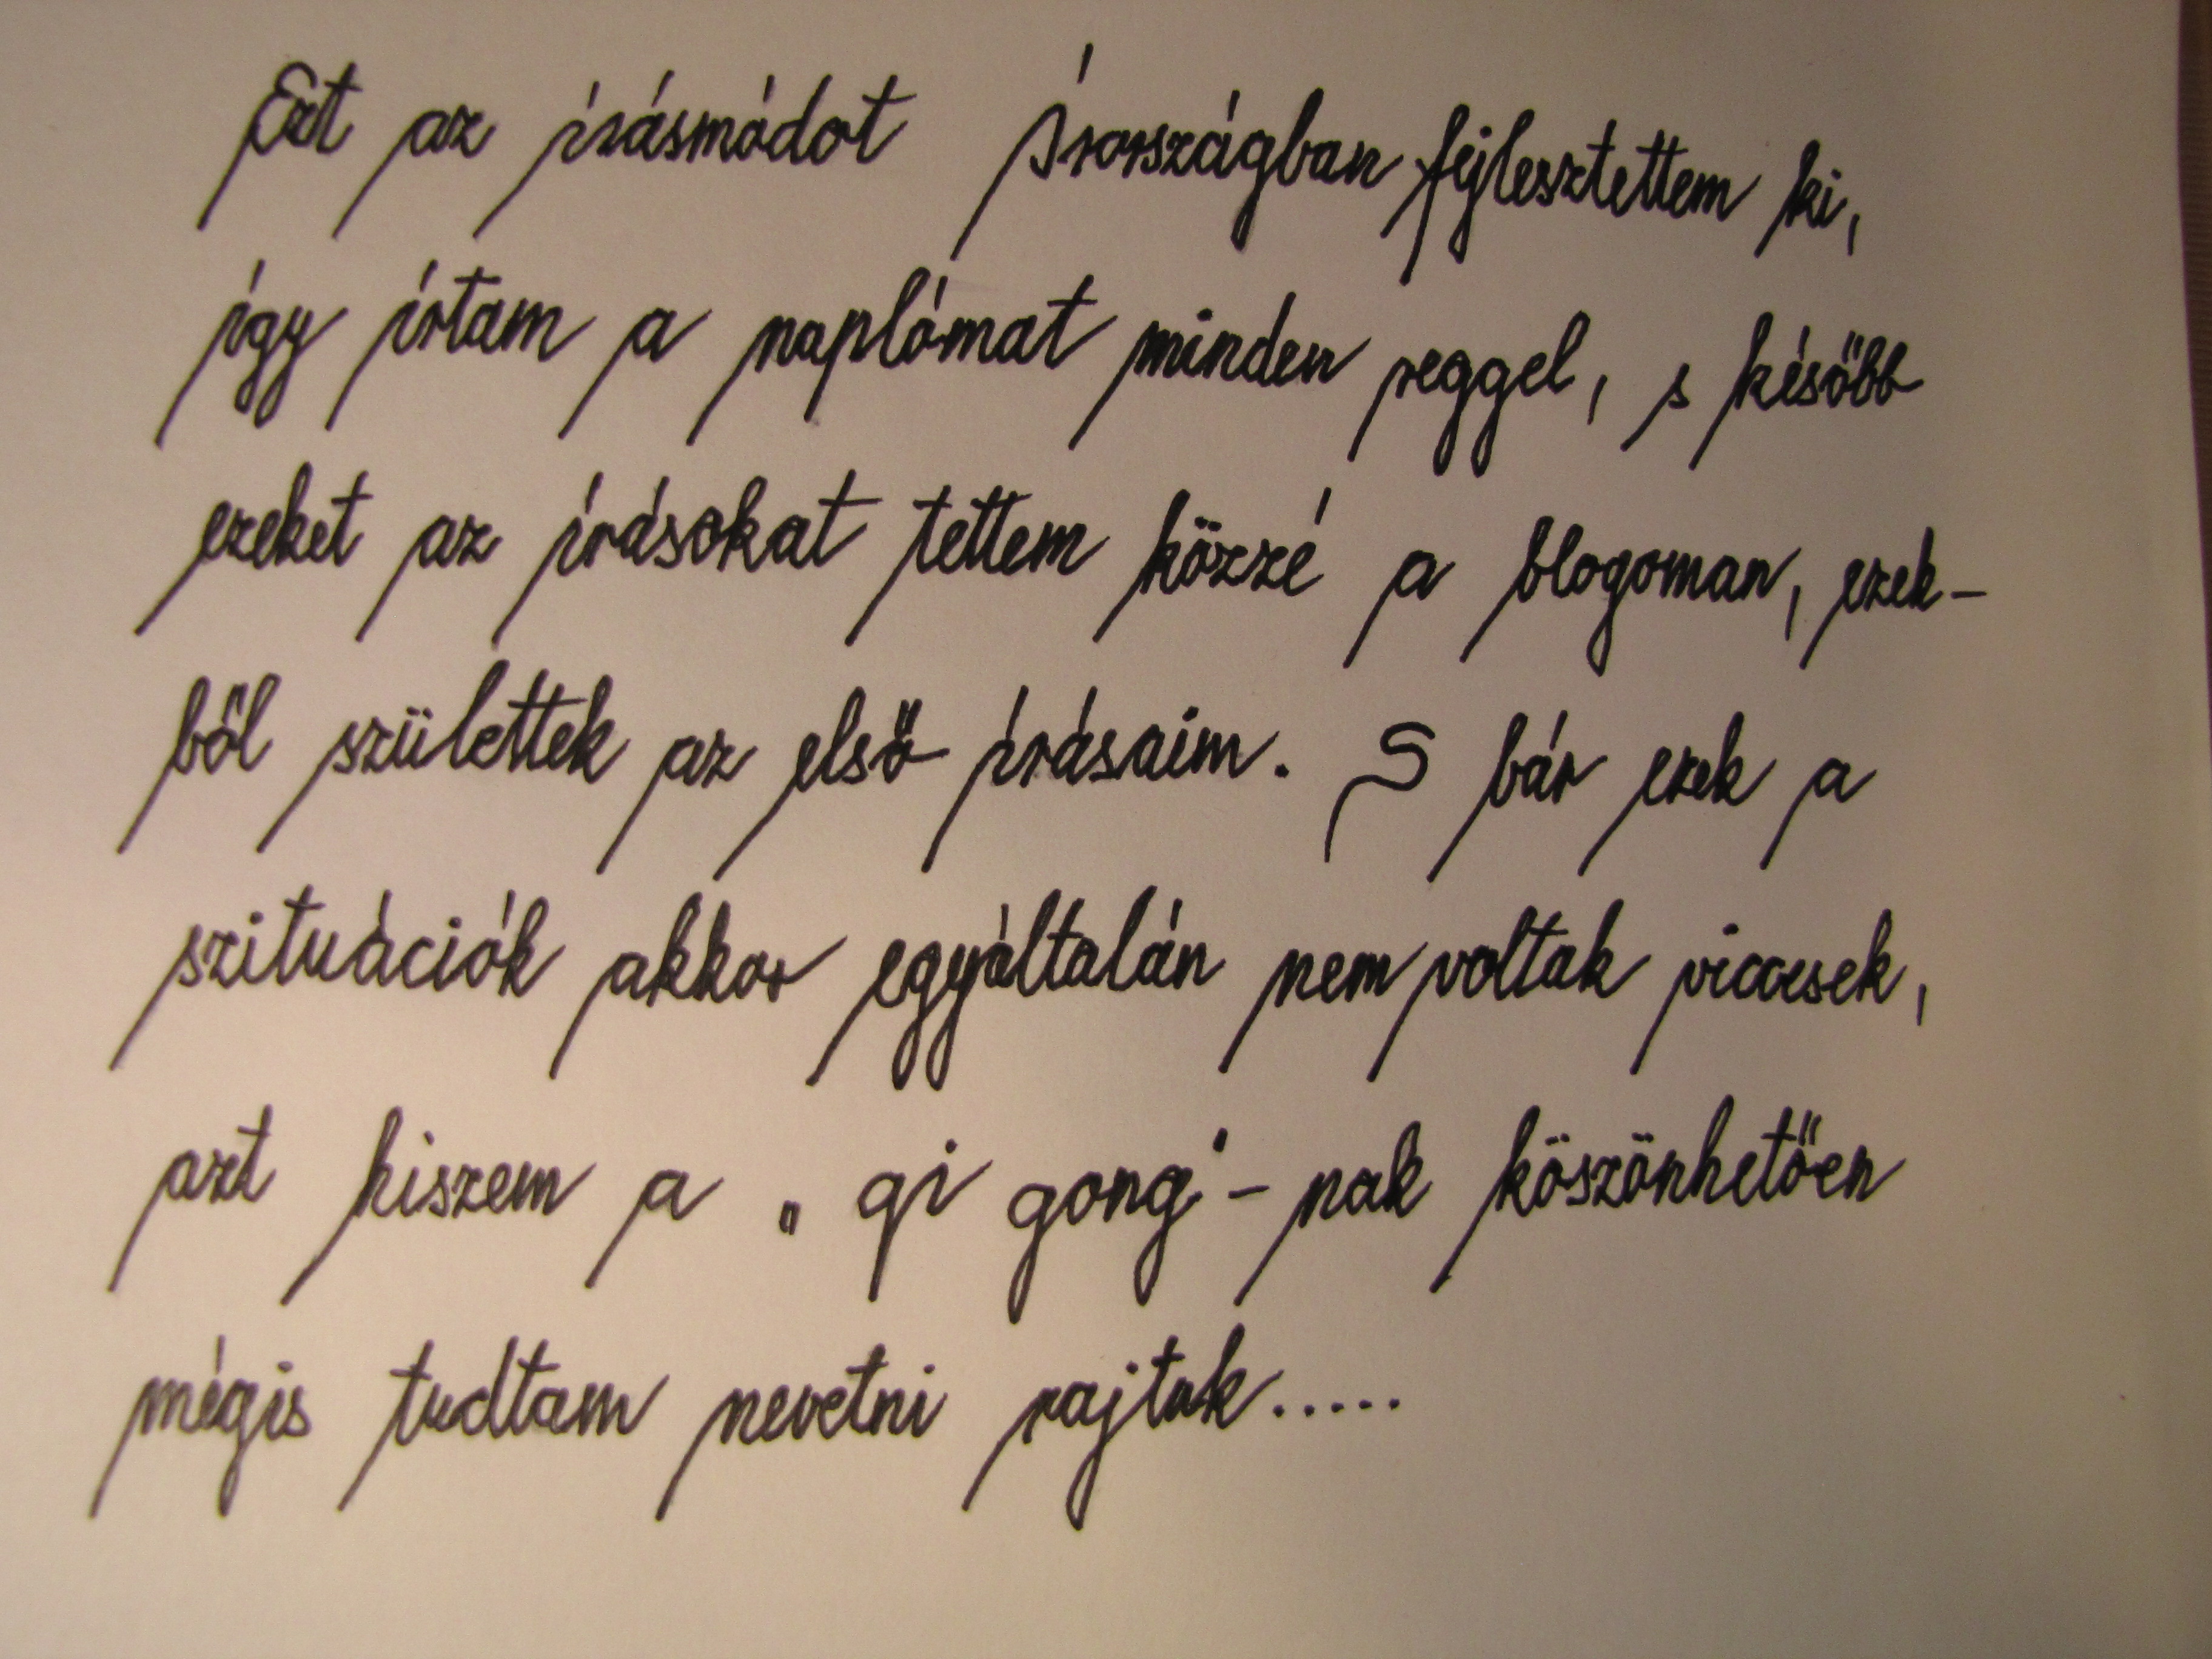 Ezt az írásmódot Írországban fejlesztettem ki,
így írtam a naplómat minden reggel, s később
ezeket az írásokat tettem közzé a blogoman, ezek-
ből születtek az első írásaim. S bár ezek a
szituációk akkor egyáltalán nem voltak viccesek,
azt hiszem a „qi gong"-nak köszönhetően
mégis tudtam nevetni rajtuk.....